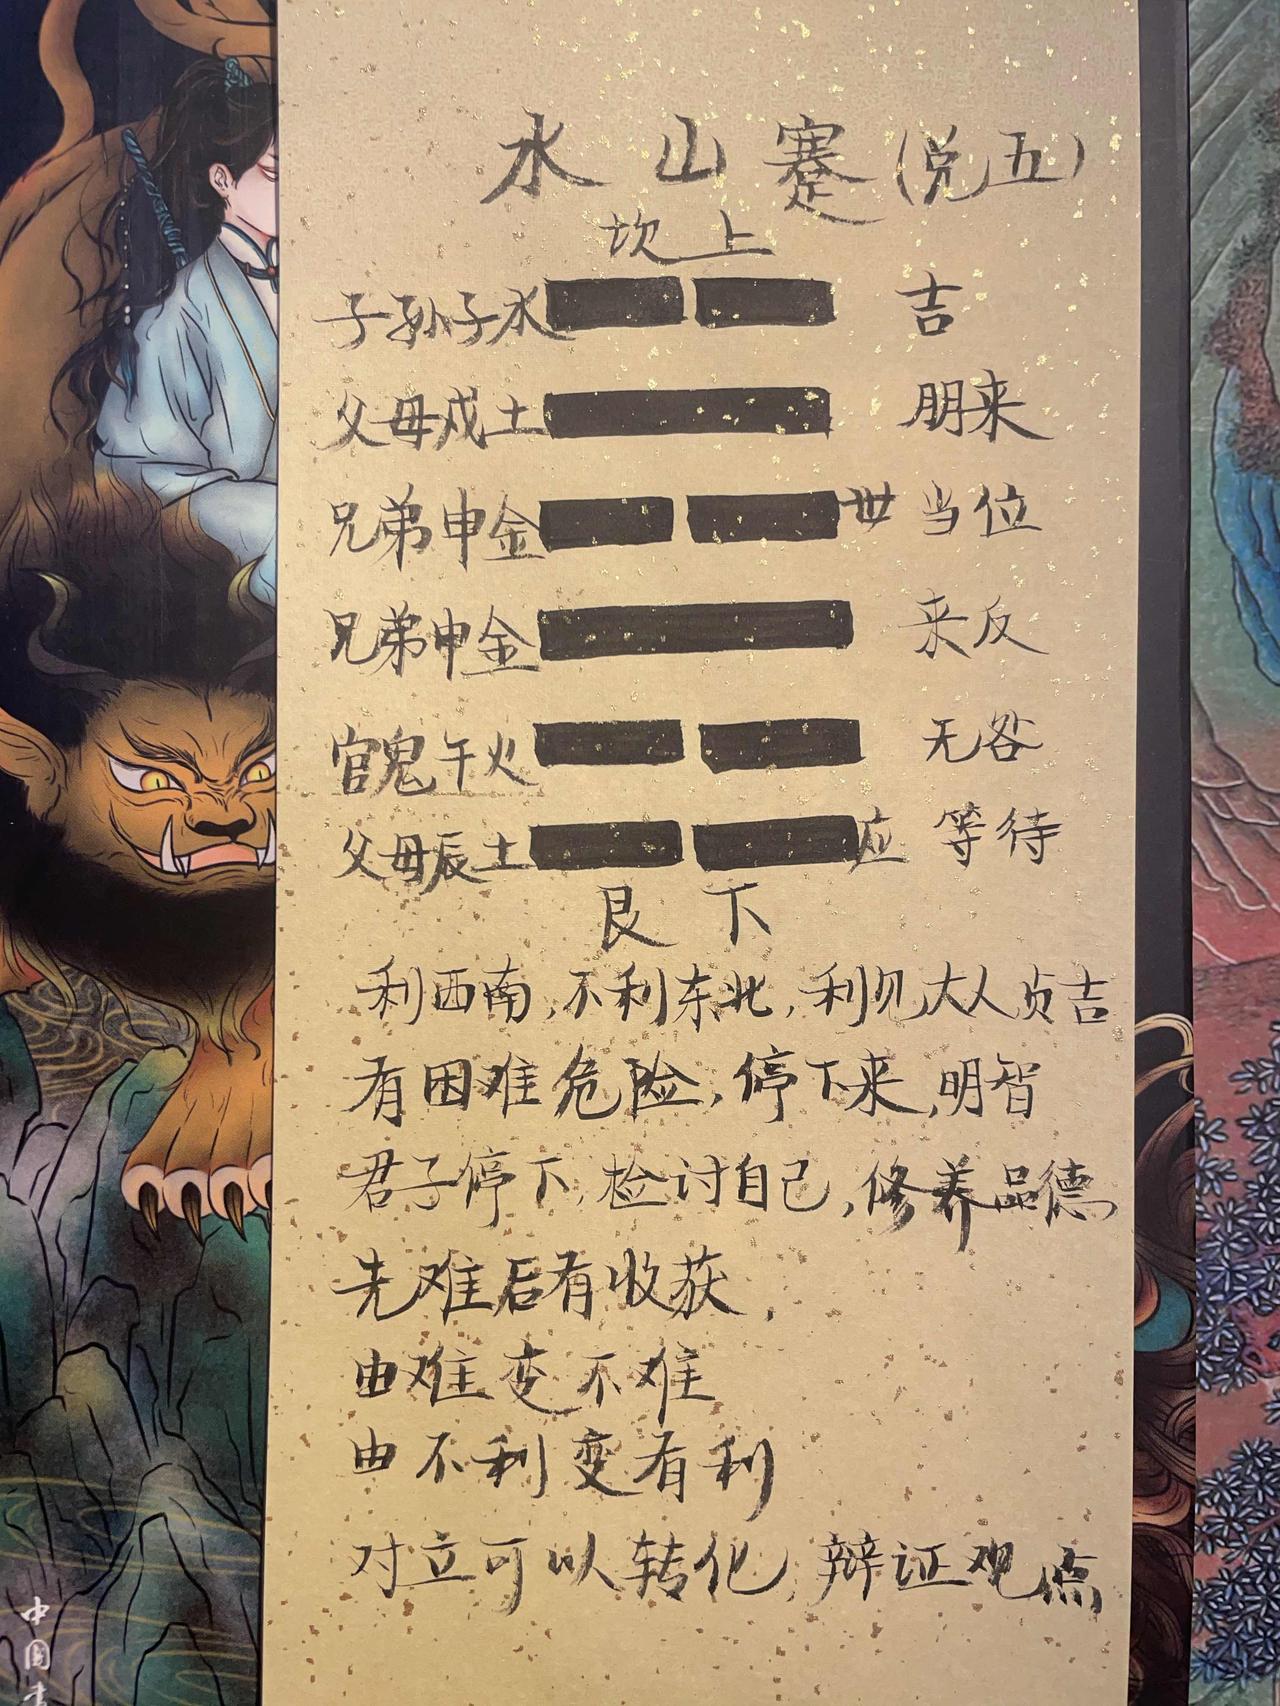 水山蹇(兑五)
坎上
子孙子水 吉
父母戌土 朋来
兄弟申金 世 当位
兄弟申金 来反
官鬼午火 无咎
父母辰土 应 等待
艮下
利西南,不利东北,利见大人贞吉
有困难危险,停下来,明智
君子停下,检讨自己,修养品德
先难后有收获,
由难变不难
由不利变有利
对立可以转化,辩证观点
中国